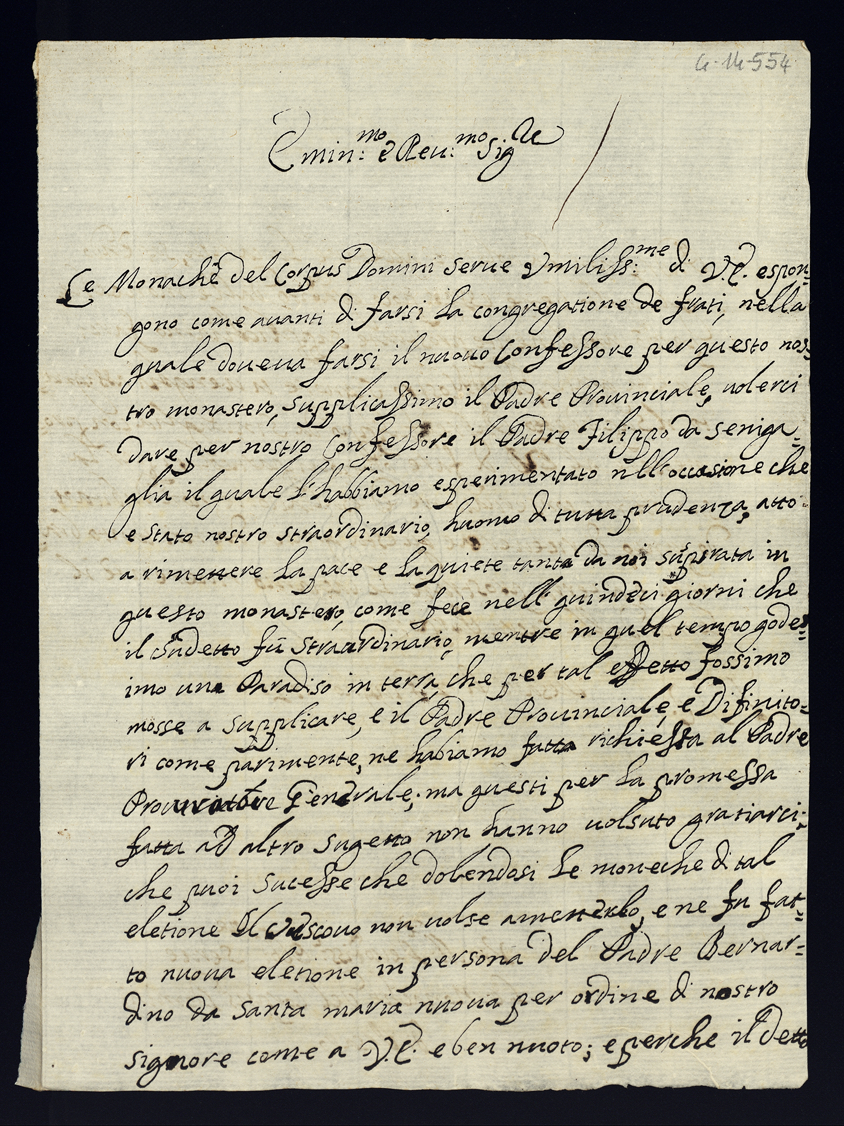 G-14-554
Emin:mo e Reu:mo Sigre
Le Monache del Corpus Domini serue Vmiliss:me di V.E. espon=
gono come auanti di farsi la congregatione de frati, nella
quale doueua farsi il nuouo Confessore per questo nos=
tro monastero, supplicassimo il Padre Prouinciale, uolerci
dare per nostro Confessore il Padre Filippo da Seniga=
glia il quale l'habbiamo esperimentato nell'occasione che
e stato nostro straordinario, huomo di tutta prudenza, atto
a rimettere la pace e la quiete tanto da noi suspirata in
questo monastero, come fece nell' quindeci giorni che
il sudetto fù straordinario, mentre in quel tempo gode=
imo una Paradiso in terra, che per tal effetto fossimo
mosse a supplicare, e il Padre Prouinciale, e Difinito=
ri come parimente, ne habiamo fatta richiesta al Padre
Procuratore Generale, ma questi per la promessa
fatta ad altro sugetto non hanno uolsuto gratiarci;
che puoi sucesse che dolendosi le moneche di tal
eletione il Vescouo non uolse ametterlo, e ne fu fat=
to nuoua eletione in persona del Padre Bernar=
dino da Santa maria nuoua per ordine di nostro
signore come a V.E. e ben nuoto; e perche il detto